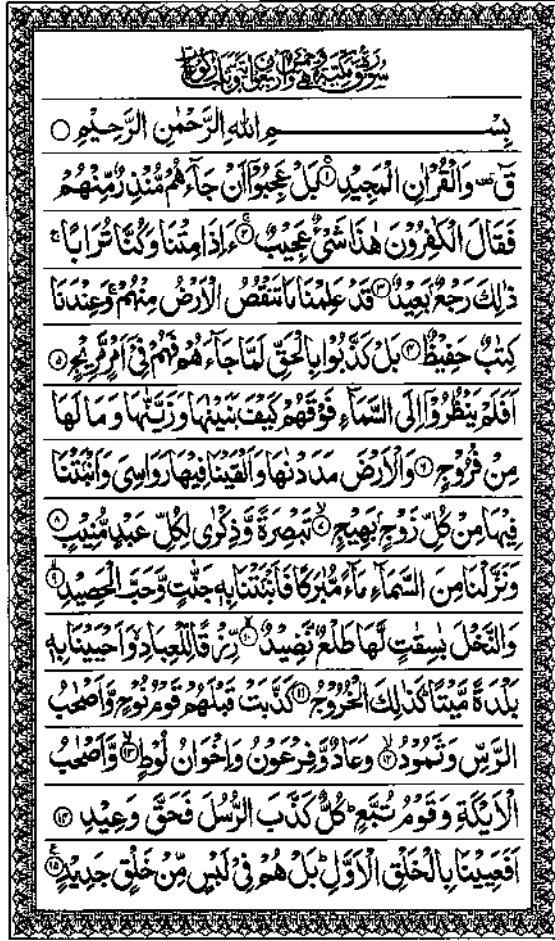 سُوْرَةُ قٓ مَكِّيَّةٌ وَّهِيَ خَمْسٌ وَّاَرْبَعُوْنَ اٰيَةً وَّثَلٰثُ رُكُوْعَاتٍ
بِسْمِ اللهِ الرَّحْمٰنِ الرَّحِيْمِ ○
قٓ ۚ وَالْقُرْاٰنِ الْمَجِيْدِ ۝۱ بَلْ عَجِبُوْۤا اَنْ جَآءَهُمْ مُّنْذِرٌ مِّنْهُمْ
فَقَالَ الْكٰفِرُوْنَ هٰذَا شَيْءٌ عَجِيْبٌ ۝۲ ءَاِذَا مِتْنَا وَكُنَّا تُرَابًا ۚ
ذٰلِكَ رَجْعٌۢ بَعِيْدٌ ۝۳ قَدْ عَلِمْنَا مَا تَنْقُصُ الْاَرْضُ مِنْهُمْ ۚ وَعِنْدَنَا
كِتٰبٌ حَفِيْظٌ ۝۴ بَلْ كَذَّبُوْا بِالْحَقِّ لَمَّا جَآءَهُمْ فَهُمْ فِيْۤ اَمْرٍ مَّرِيْجٍ ۝۵
اَفَلَمْ يَنْظُرُوْۤا اِلَى السَّمَآءِ فَوْقَهُمْ كَيْفَ بَنَيْنٰهَا وَزَيَّنّٰهَا وَمَا لَهَا
مِنْ فُرُوْجٍ ۝۶ وَالْاَرْضَ مَدَدْنٰهَا وَاَلْقَيْنَا فِيْهَا رَوَاسِيَ وَاَنْۢبَتْنَا
فِيْهَا مِنْ كُلِّ زَوْجٍۢ بَهِيْجٍ ۝۷ تَبْصِرَةً وَّذِكْرٰى لِكُلِّ عَبْدٍ مُّنِيْبٍ ۝۸
وَنَزَّلْنَا مِنَ السَّمَآءِ مَآءً مُّبٰرَكًا فَاَنْۢبَتْنَا بِهٖ جَنّٰتٍ وَّحَبَّ الْحَصِيْدِ ۝۹
وَالنَّخْلَ بٰسِقٰتٍ لَّهَا طَلْعٌ نَّضِيْدٌ ۝۱۰ رِّزْقًا لِّلْعِبَادِ ۙ وَاَحْيَيْنَا بِهٖ
بَلْدَةً مَّيْتًا ؕ كَذٰلِكَ الْخُرُوْجُ ۝۱۱ كَذَّبَتْ قَبْلَهُمْ قَوْمُ نُوْحٍ وَّاَصْحٰبُ
الرَّسِّ وَثَمُوْدُ ۝۱۲ وَعَادٌ وَّفِرْعَوْنُ وَاِخْوَانُ لُوْطٍ ۝۱۳ وَّاَصْحٰبُ
الْاَيْكَةِ وَقَوْمُ تُبَّعٍ ؕ كُلٌّ كَذَّبَ الرُّسُلَ فَحَقَّ وَعِيْدِ ۝۱۴
اَفَعَيِيْنَا بِالْخَلْقِ الْاَوَّلِ ؕ بَلْ هُمْ فِيْ لَبْسٍ مِّنْ خَلْقٍ جَدِيْدٍ ۝۱۵